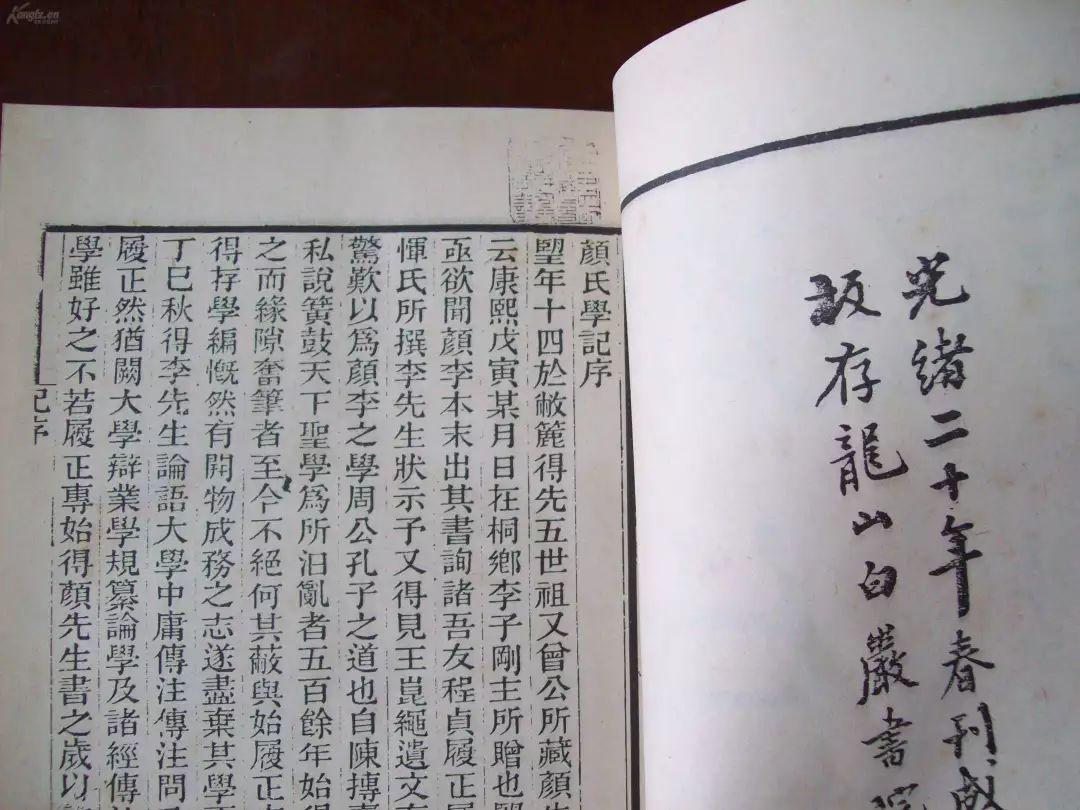 光緒二十年春刊
坂存龍山白巖書院
顏氏學記序
朢年十四於敝簏得先五世祖又曾公所藏顏
云康熙戊寅某月日在桐鄉李子剛主所贈也
亟欲聞顏李本末出其書詢諸吾友程貞履正
惲氏所撰李先生狀示予又得見王崑繩遺文
驚歎以爲顏李之學周公孔子之道也自陳摶
私說簧鼓天下聖學爲所汩亂者五百餘年始
之而緣隙奮筆者至今不絕何其蔽與始履正
得存學編慨然有開物成務之志遂盡棄其學
丁巳秋得李先生論語大學中庸傳注傳注問
履正然猶闕大學辯業學規纂論學及諸經傳
學雖好之不若履正專始得顏先生書之歲以
記序
Kongfz.cn